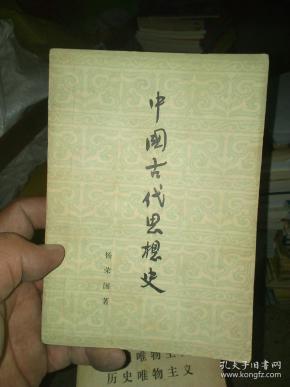 中國古代思想史
杨荣国著
唯物主
历史唯物主义
孔夫子旧书网